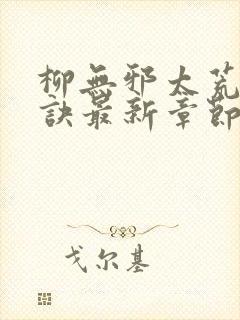 柳無邪太荒
訣最新章節
戈尔基